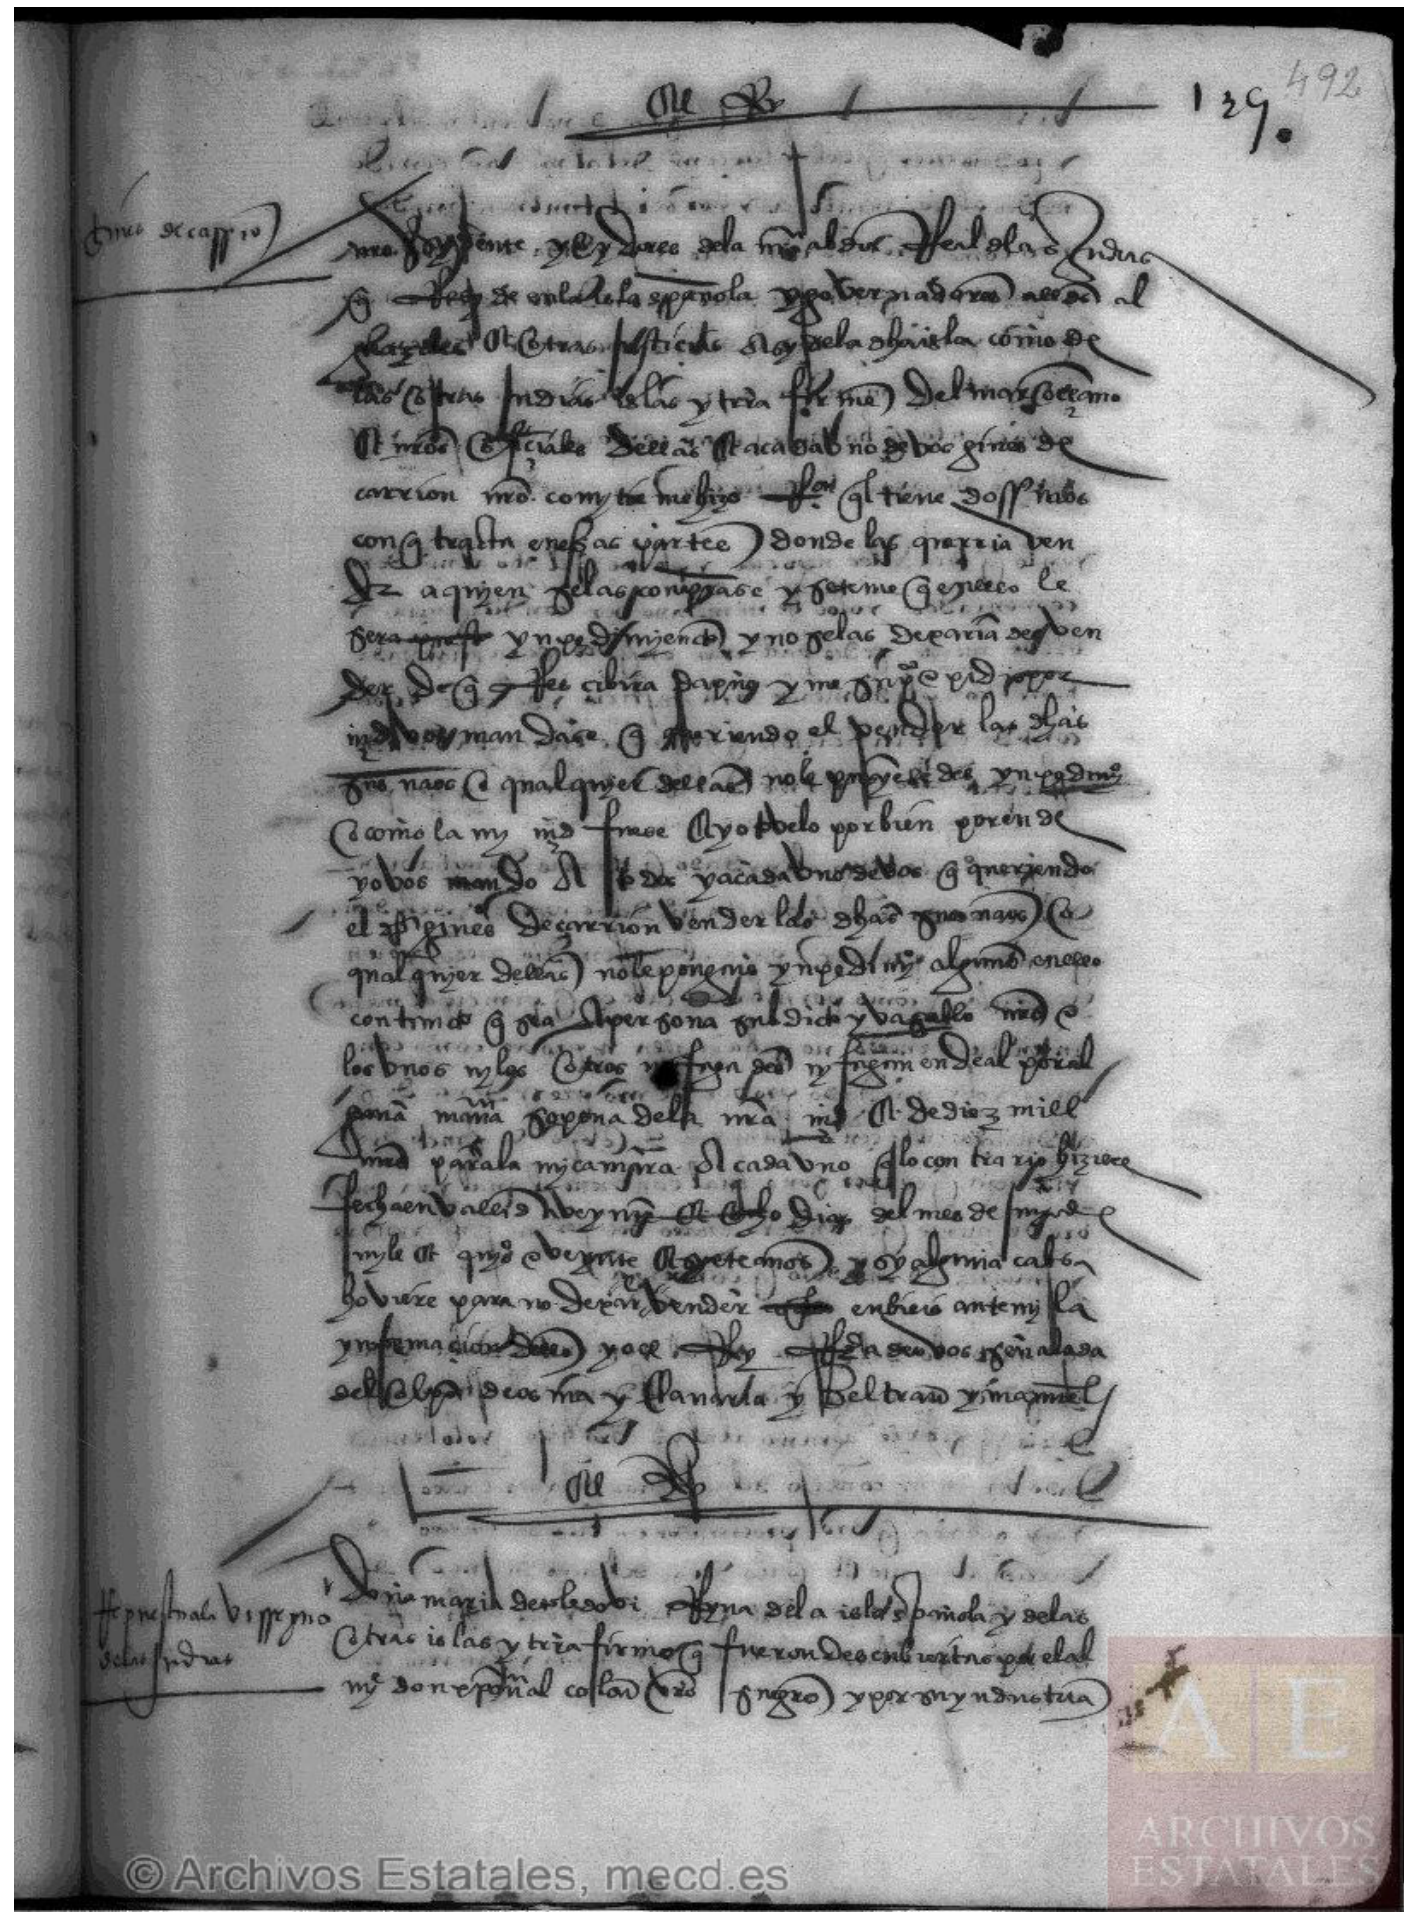 492
139.
El Rey
gines de carrion
nro presydente y oydores dela nra abdiª Real delas yndias
q Resyde enla isla española y governadores allds al
caldes et otras justicias asy dela dha isla como de
las otras yndias islas y trra firme del mar oceano
et nros oficiales dellas et a cada uno de vos gines de
carrion nro comytre me hizo Ron ql tiene dos naos
con q tracta en esas partes donde las querria ven
der a quyen gelas conprase y se teme q en ello le
sera puesto ynpedimyento y no gelas dexarian ven
der de q Rescibira daño y me suplico e pidio por
md vos mandase q queriendo el vender las dhas
sus naos o qualquyer dellas no le pusyesedes ynpedimyº
o como la my md fuese e yo tovelo por bien porende
yo vos mando a todos y a cada uno de vos q queriendo
el dho gines de carrion vender las dhas sus naos o
qualquyer dellas no le pongays ynpedimyº alguno en ello
contanto q sea a persona subdicto y vasallo nro e
los unos ny los otros no fagades ny fagan ende al por al
guna manª so pena dela nra md et de diez mill
mrs para la my camara a cada uno q lo contrario hiziere
fecha en valld a veynte et ocho dias del mes de
myle et quyºs e veynte et syete años y sy alguna cabsa
hoviere para no dexar vender enbieis ante my la
ynformacion dello yo el Rey Refrendada de vos señalada
del obpo de osma y canaria y beltran y manuel
El Rey
Respuesta ala vissreyna
delas yndias
Doña maria de toledo vi Reyna dela isla española y delas
otras islas y trra firme q fueron descubiertas por el al
myte don xpoval colon vro suegro y por su yndustria
ARCHIVOS
ESTATALES
© Archivos Estatales, mecd.es